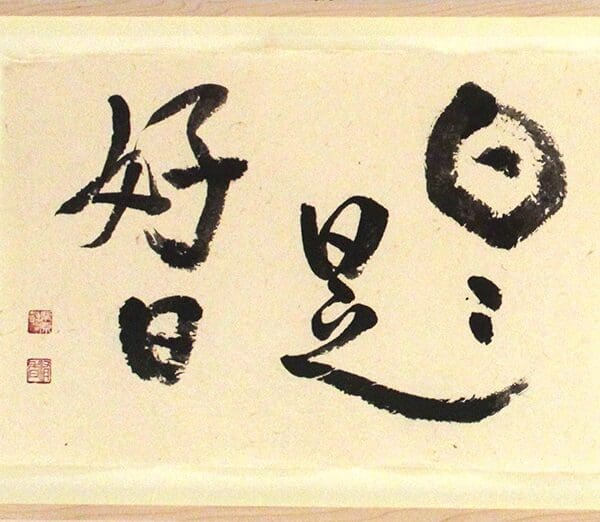 日々
是
好日